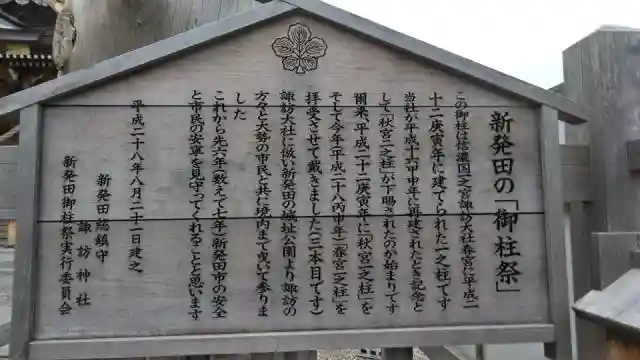 新発田の「御柱祭」
この御柱は信濃国一之宮諏訪大社春宮に平成二
十二庚寅年に建てられた一之柱です
当社が平成十六甲申年に再建されたとき記念と
して「秋宮二之柱」が下賜されたのが始まりです
爾来、平成二十二庚寅年に「秋宮一之柱」を
そして今年（平成二十八丙申年）「春宮一之柱」を
拝受させて戴きました（三本目です）
諏訪大社に倣い新発田の城址公園より諏訪の
方々と大勢の市民と共に境内まで曳いて参りま
した
これから先六年（数えで七年）新発田市の安全
と市民の安寧を見守ってくれることと思います
平成二十八年八月二十一日建之
新発田総鎮守
諏訪神社
新発田御柱祭実行委員会